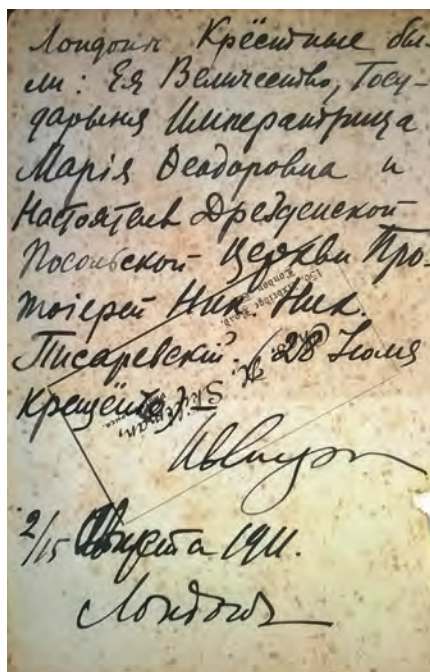 Лондонъ Крёстные бы-
ли: Ея Величество, Госу-
дарыня Императрица
Марія Ѳеодоровна и
Настоятель Дрезденской
Посольской Церкви Про-
тоіерей Ник. Ник.
Писаревскій. (28 Іюля
крещёніе)
2/15 Августа 1911.
Лондонъ